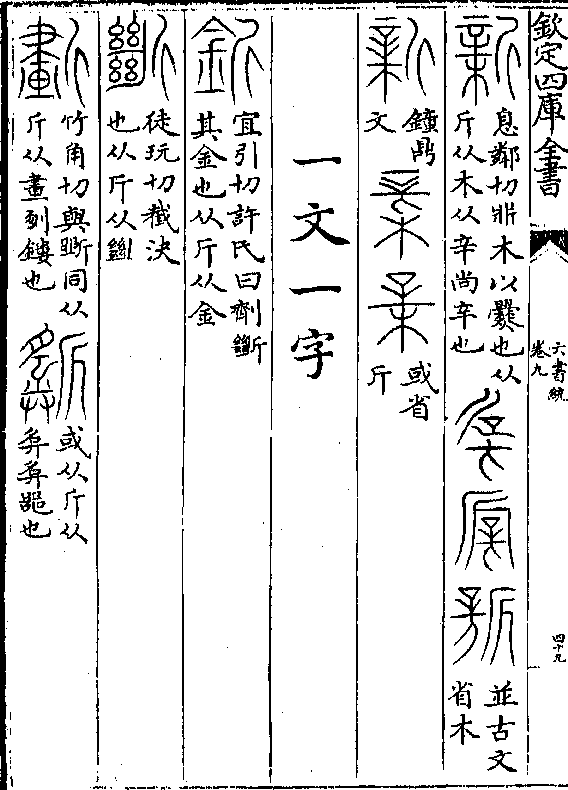 欽定四庫全書
六書統
卷九
四十九
新
息鄰切木以爨也从
斤从木从辛尚辛也
並古文
省木
新
鐘鼎
文
或省
斤
一文一字
釿
宜引切許氏曰劑斷
其金也从斤从金
斷
徒玩切截決
也从斤从㡭
竹角切與斲同从
斤从畫刻鏤也
或从斤从
器也